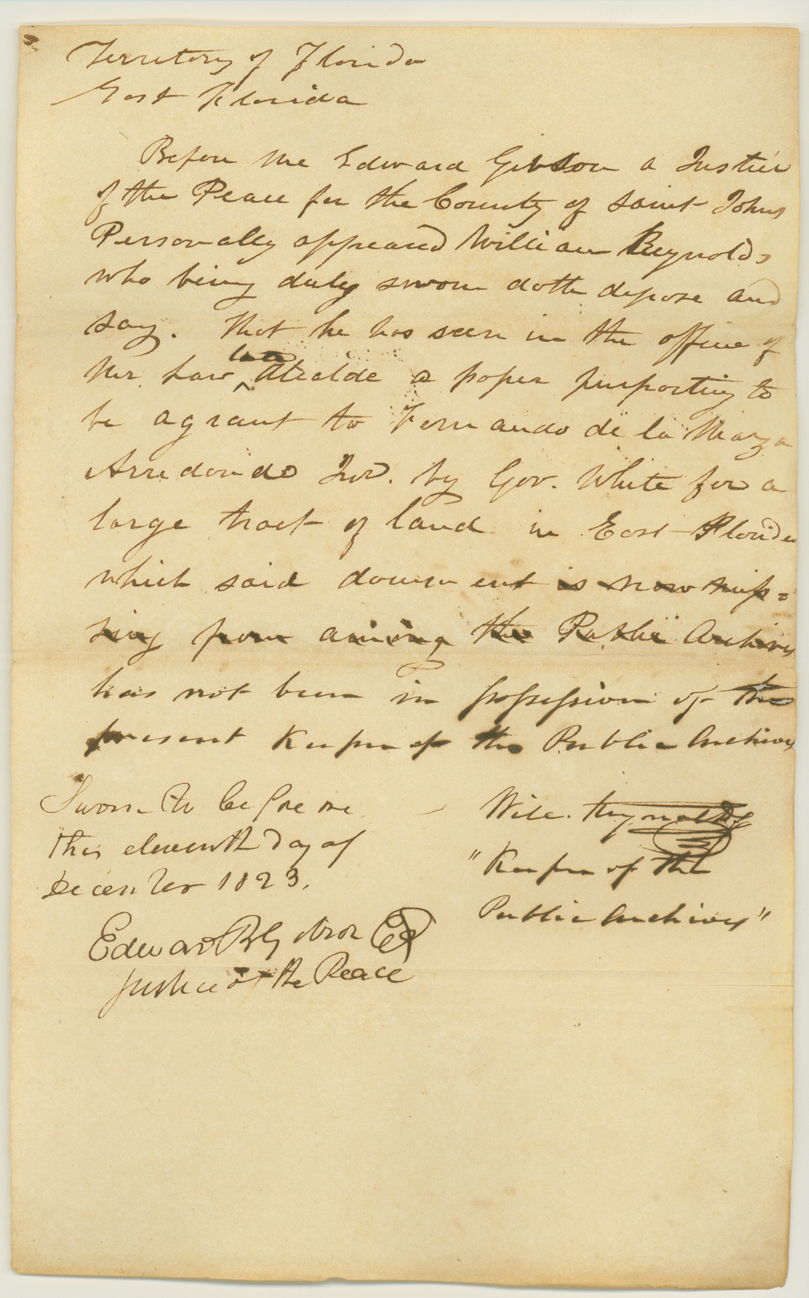 Territory of Florida
East Florida
Before me Edward Gibson a Justice
of the Peace for the County of Saint Johns
Personally appeared William Reynolds
who being duly sworn doth depose and
say. That he has seen in the office of
Mr Law, Alcalde a paper purporting to
be a grant to Fernando de la Maza
Arredondo Jnr. by Gov. White for a
large tract of land in East Florida
which said document is now mis=
sing from among the Public Archives
has not been in possession of the
present Keeper of the Public Archives
Sworn to before me
this eleventh day of
December 1823.
Will. Reynolds
"Keeper of the
Public Archives"
Edward R Gibson
Justice of the Peace